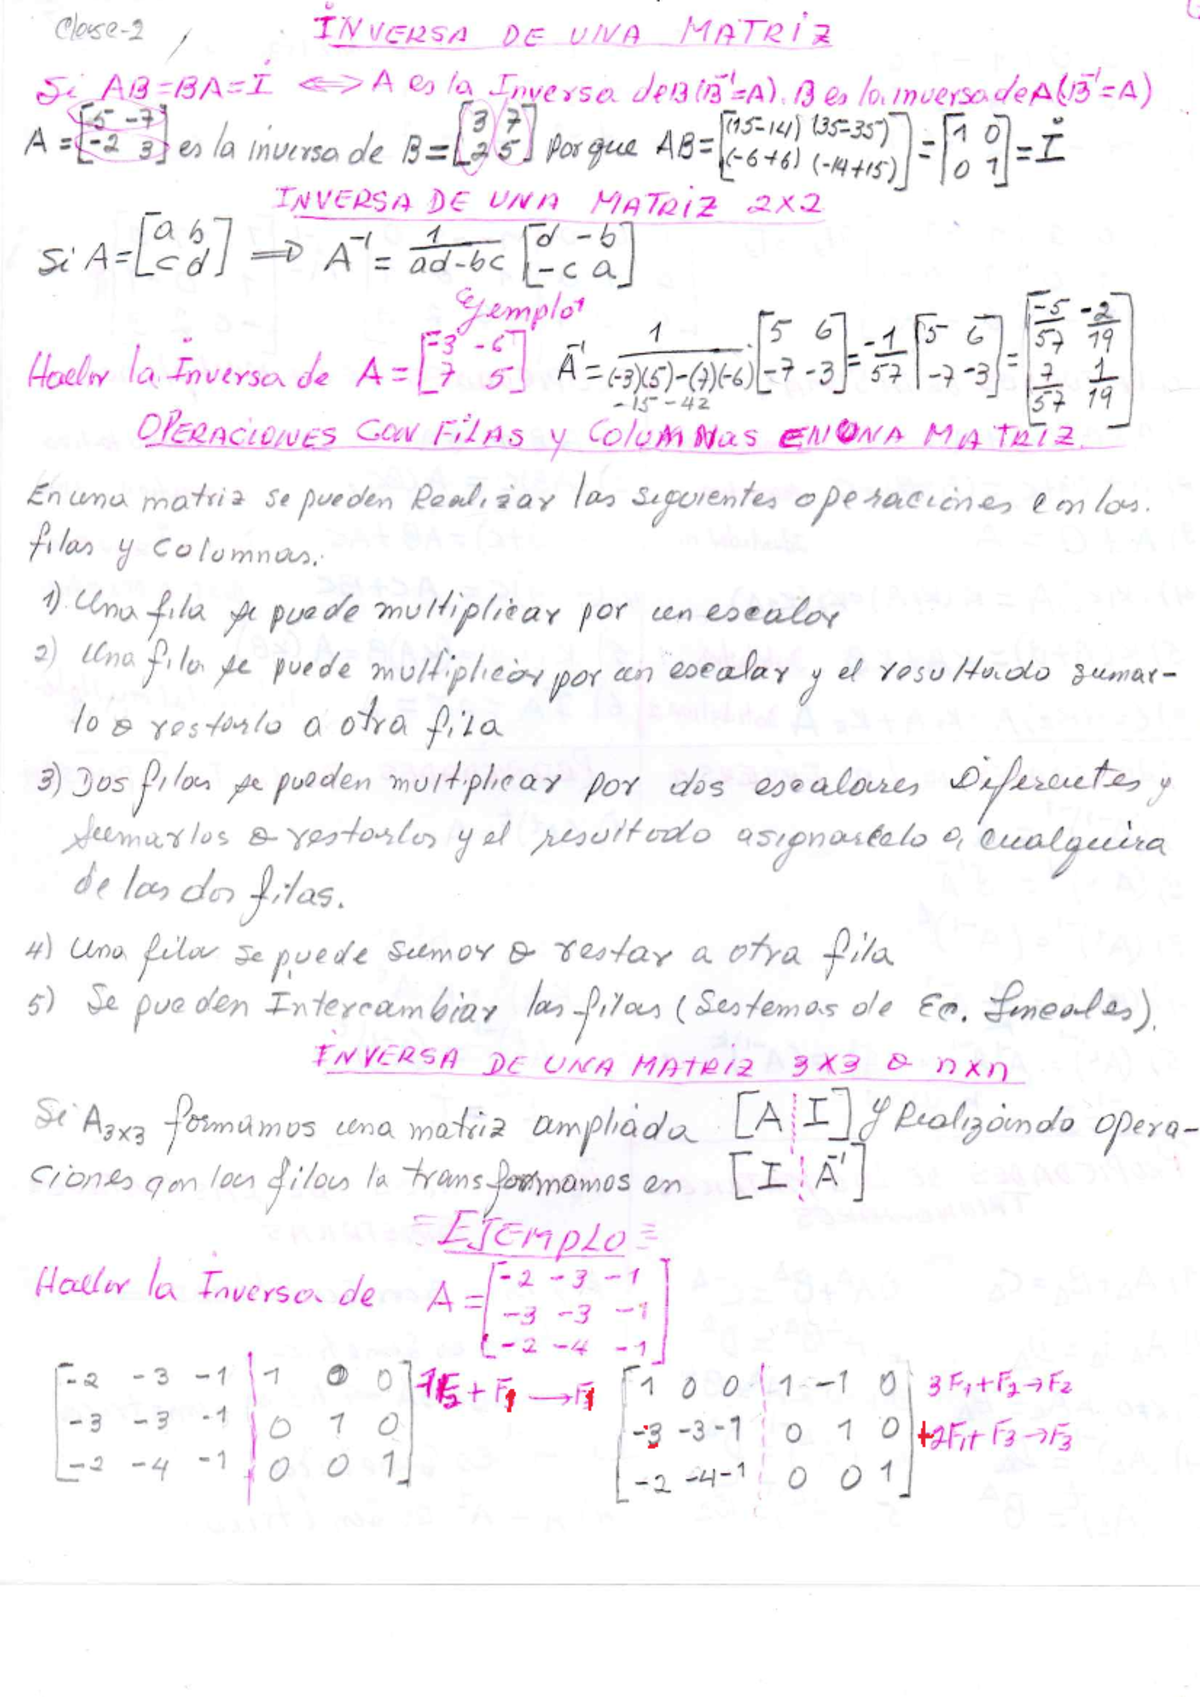 Clase-2
INVERSA DE UNA MATRIZ
Si AB=BA=I ⟺ A es la Inversa de B (B⁻¹=A). B es la inversa de A (B⁻¹=A)
A = [5 -7; -2 3] es la inversa de B = [3 7; 2 5] Porque AB = [(15-14) (35-35); (-6+6) (-14+15)] = [1 0; 0 1] = I
INVERSA DE UNA MATRIZ 2x2
Si A = [a b; c d] ⟹ A⁻¹ = 1/(ad-bc) [d -b; -c a]
Ejemplo
Hallar la Inversa de A = [-3 -6; 7 5] A⁻¹ = 1/((-3)(5)-(7)(-6)) · [5 6; -7 -3] = -1/57 [5 6; -7 -3] = [-5/57 -2/19; 7/57 1/19]
-15-42
OPERACIONES CON FILAS y COLUMNAS EN UNA MATRIZ.
En una matriz se pueden Realizar las siguientes operaciones con las.
filas y columnas.
1) Una fila se puede multiplicar por un escalar
2) Una fila se puede multiplicar por un escalar y el resultado sumar-
lo o restarlo a otra fila
3) Dos filas se pueden multiplicar por dos escalares Diferentes y
sumarlos o restarlos y el resultado asignarcelo a cualquiera
de las dos filas.
4) Una fila se puede sumar o restar a otra fila
5) Se pueden Intercambiar las filas (Sistemas de Ec. Lineales).
INVERSA DE UNA MATRIZ 3x3 o nxn
Si A₃ₓ₃ formamos una matriz ampliada [A ¦ I] y Realizando opera-
ciones con las filas la transformamos en [I ¦ A⁻¹]
= EJEMPLO =
Hallar la Inversa de A = [-2 -3 -1; -3 -3 -1; -2 -4 -1]
[-2 -3 -1 ¦ 1 0 0; -3 -3 -1 ¦ 0 1 0; -2 -4 -1 ¦ 0 0 1] -1F₂ + F₁ → F₁ [1 0 0 ¦ 1 -1 0; -3 -3 -1 ¦ 0 1 0; -2 -4 -1 ¦ 0 0 1] 3F₁+F₂→F₂
+2F₁+F₃→F₃